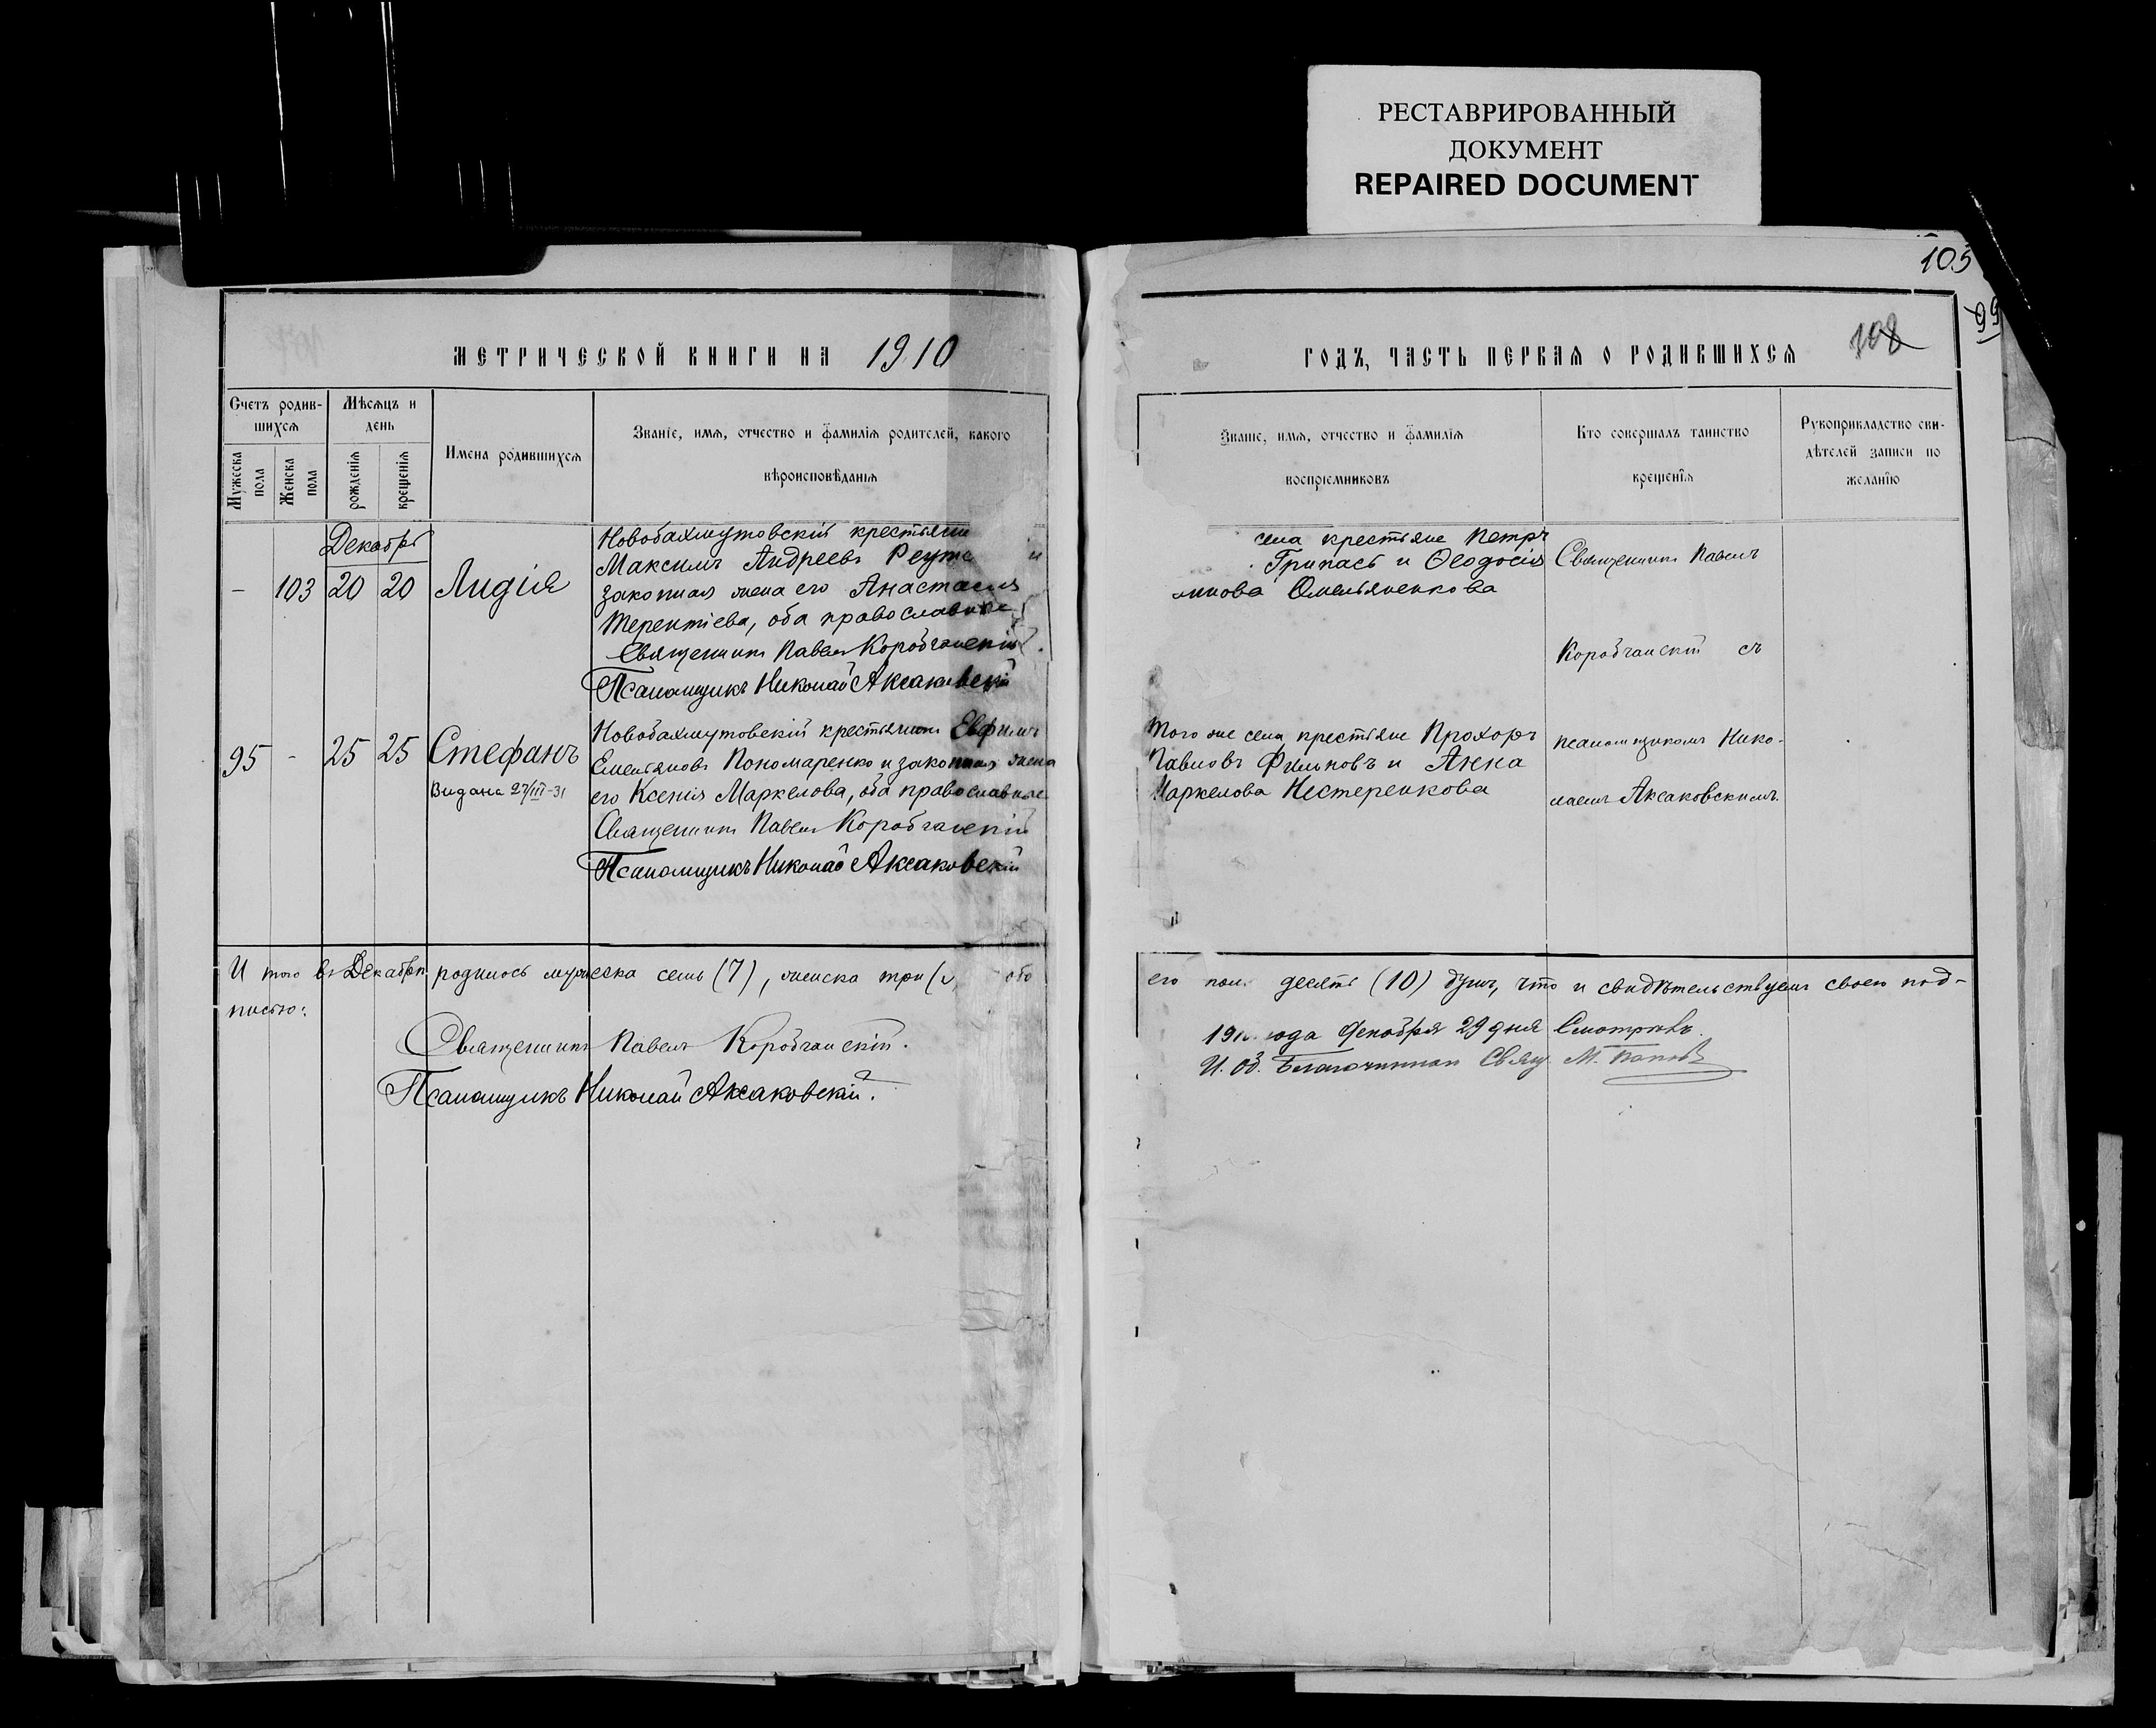 РЕСТАВРИРОВАННЫЙ
ДОКУМЕНТ
REPAIRED DOCUMENT
105
99
108
МЕТРИЧЕСКОЙ КНИГИ НА 1910
Счетъ родив-
шихся
Мѣсяцъ и
день
Имена родившихся
Званіе, имя, отчество и фамилія родителей, какого
вѣроисповѣданія
Мужеска пола
Женска пола
рожденія
крещенія
Декабрь
- 103 20 20 Лидія
Новобахмутовскій крестьянин
Максимъ Андреевъ и
законная жена его Анастасия
Терентіева, оба православные
Священникъ Павелъ Коробчанскій.
Псаломщикъ Николай Аксаковскій
95 - 25 25 Стефанъ
Видана 27/III-31
Новобахмутовскій крестьянинъ Евфимъ
Емельяновъ Пономаренко и законная жена
его Ксенія Маркелова, оба православные
Священникъ Павелъ Коробчанскій
Псаломщикъ Николай Аксаковскій
И того въ Декабрѣ родилось мужеска семь (7), женска три обо
писью:
Священникъ Павелъ Коробчанскій.
Псаломщикъ Николай Аксаковскій.
ГОДЪ, ЧАСТЬ ПЕРВАЯ О РОДИВШИХСЯ
Званіе, имя, отчество и фамилія
воспріемниковъ
Кто совершалъ таинство
крещенія
Рукоприкладство сви-
дѣтелей записи по
желанію
села крестьяне Петръ
Грипась и Ѳеодосія
Омельяненкова
Священникъ Павелъ
Коробчанскій съ
Того же села крестьяне Прохоръ
Павловъ Фильковъ и Анна
Маркелова Нестеренкова
псаломщикомъ Нико-
лаемъ Аксаковскимъ.
его пол. десять (10) душъ, что и свидѣтельствуемъ своею под-
года Декабря 29 дня Смотрѣлъ.
И. об. Благочиннаго Свящ. М. Поповъ